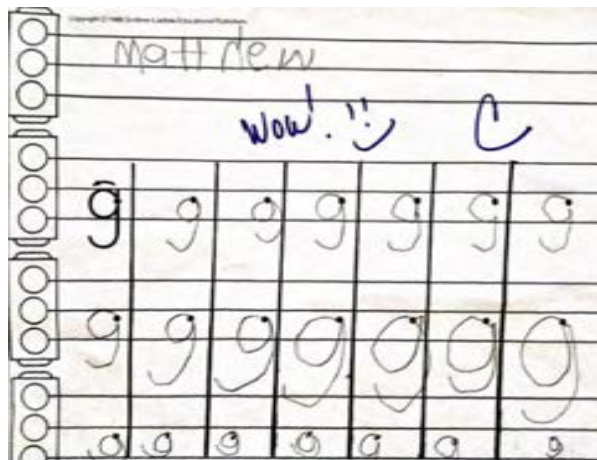 matthew
Wow!!! C
g g g g g g g
g g g g g g g
g g g g g g g